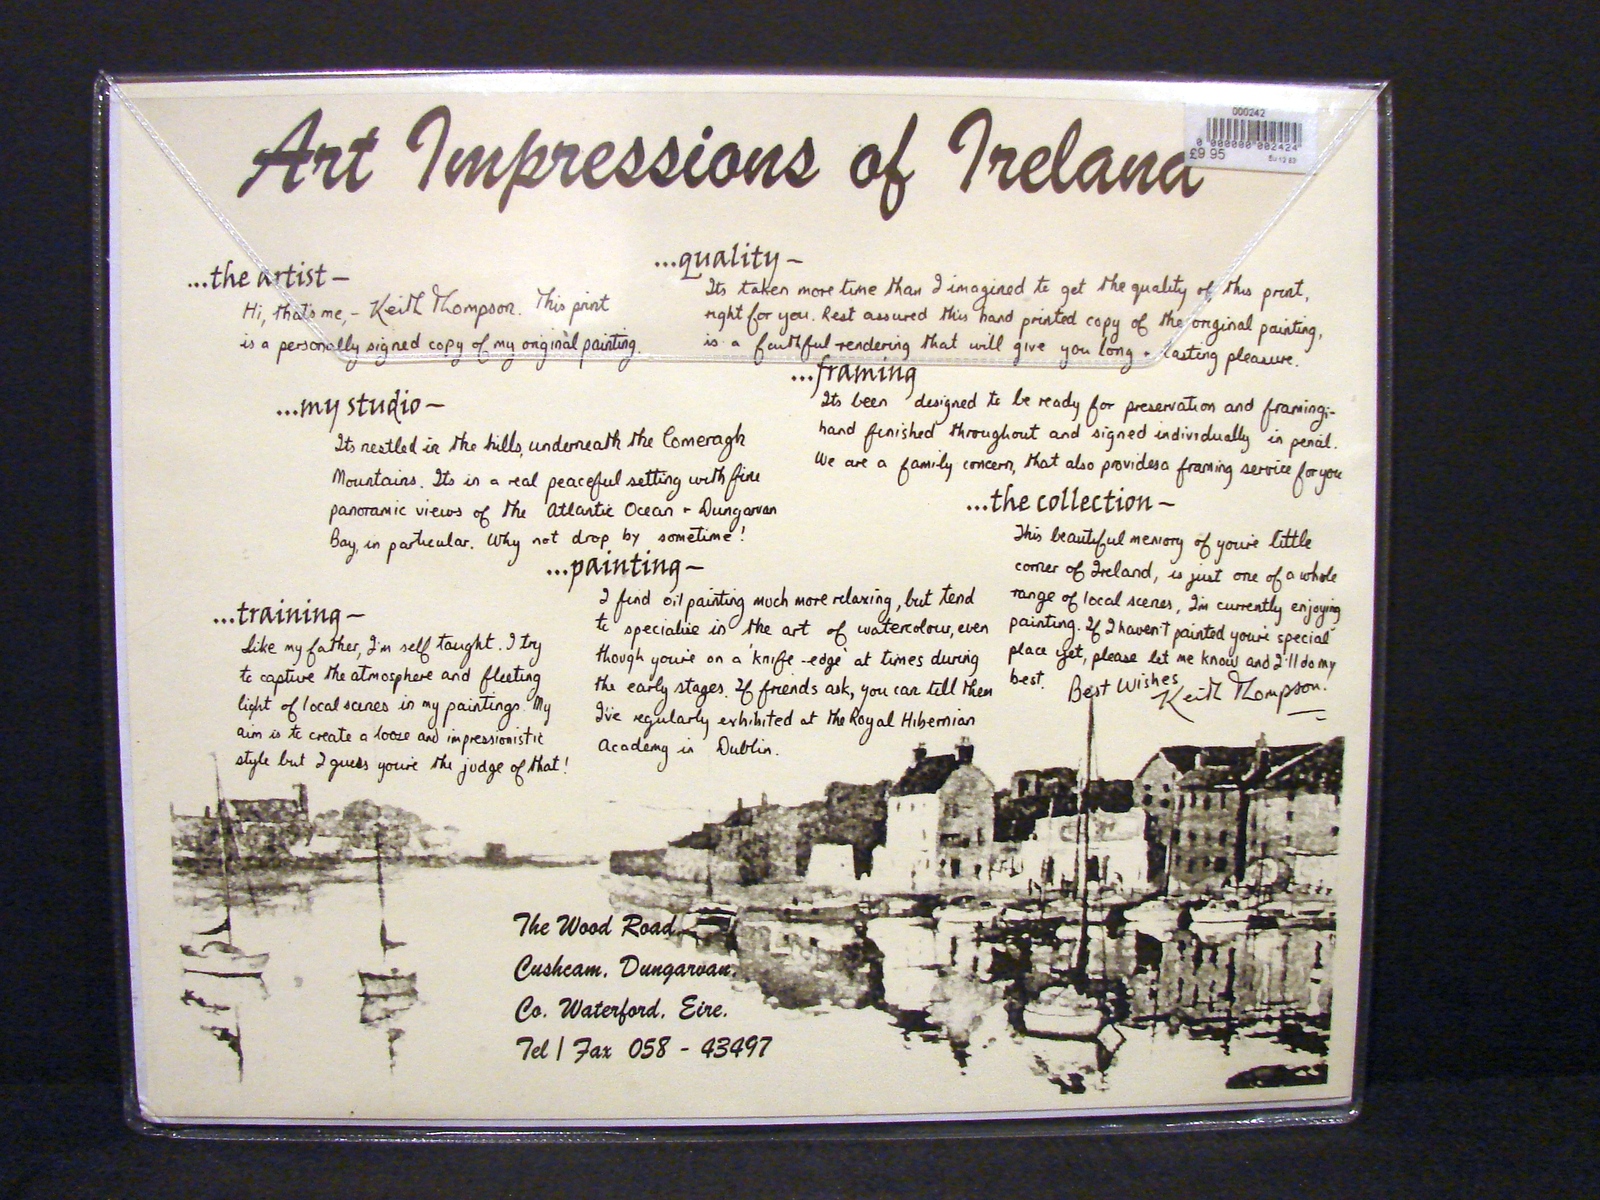 Art Impressions of Ireland
000242
0 000000 002424
£9.95
...the artist –
Hi, that's me, - Keith Thompson. This print
is a personally signed copy of my original painting.
...quality –
Its taken more time than I imagined to get the quality of this print,
right for you. Rest assured this hand printed copy of the original painting,
is a faithful rendering that will give you long + lasting pleasure.
...framing
Its been designed to be ready for preservation and framing:-
hand finished throughout and signed individually in pencil.
We are a family concern, that also provides a framing service for you
...my studio –
Its nestled in the hills, underneath the Comeragh
Mountains. Its in a real peaceful setting with fine
panoramic views of the Atlantic Ocean + Dungarvan
Bay, in particular. Why not drop by sometime!
...the collection –
This beautiful memory of you're little
corner of Ireland, is just one of a whole
range of local scenes, I'm currently enjoying
painting. If I haven't painted you're special
place yet, please let me know and I'll do my
best. Best Wishes
Keith Thompson.
...painting –
I find oil painting much more relaxing, but tend
to specialise in the art of watercolour, even
though you're on a 'knife-edge' at times during
the early stages. If friends ask, you can tell them
I've regularly exhibited at the Royal Hibernian
Academy in Dublin.
...training –
Like my father, I'm self taught. I try
to capture the atmosphere and fleeting
light of local scenes in my paintings. My
aim is to create a loose and impressionistic
style but I guess you're the judge of that!
The Wood Road,
Cushcam, Dungarvan,
Co. Waterford, Eire.
Tel / Fax 058 - 43497